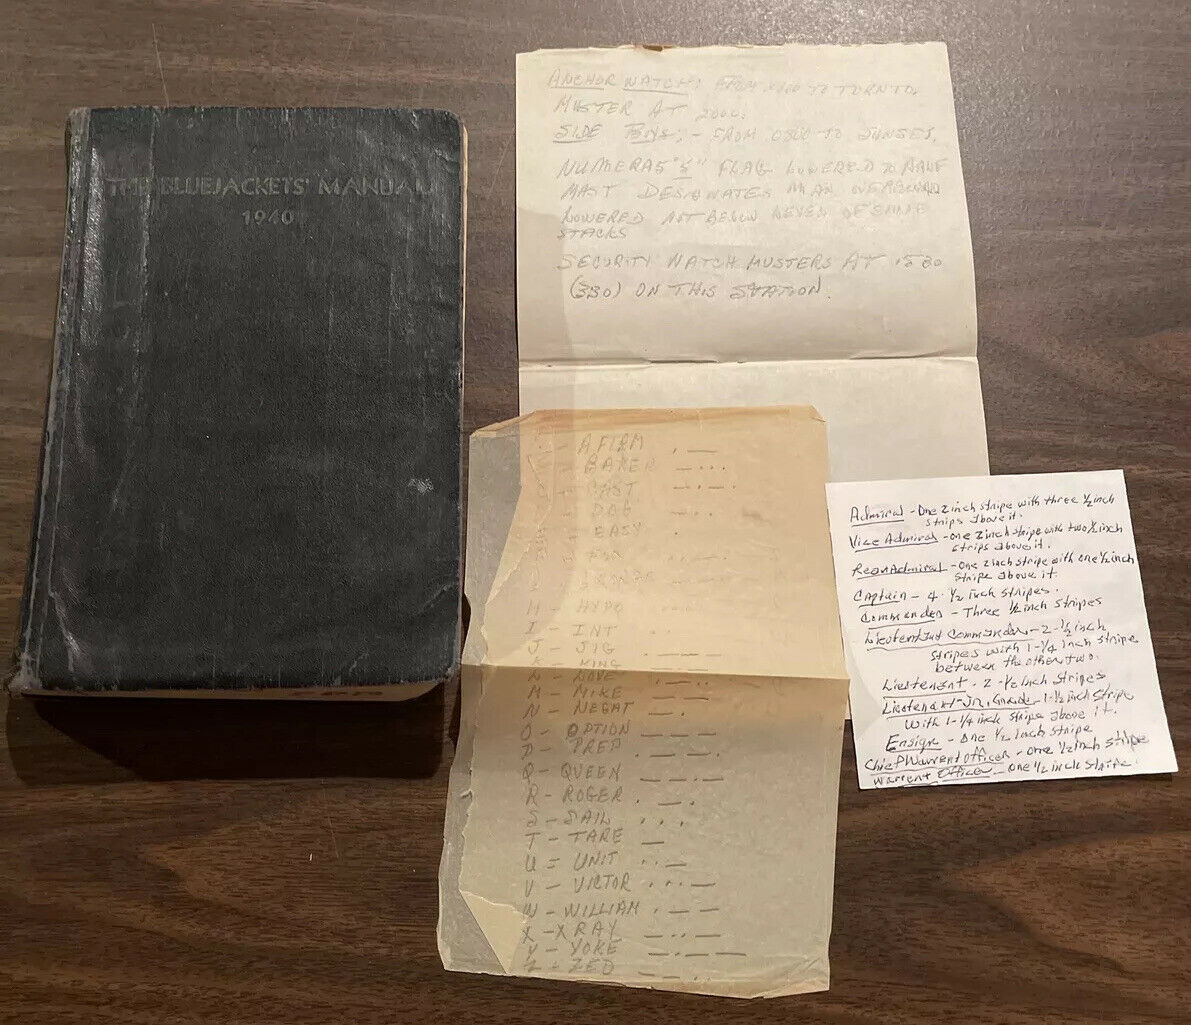 THE BLUEJACKETS' MANUAL
1940
ANCHOR WATCH: FROM TO TURN TO.
MUSTER AT 2000.
SIDE BOYS:- FROM 0800 TO SUNSET.
NUMERAL "5" FLAG LOWERED TO HALF
MAST DESIGNATES MAN OVERBOARD
LOWERED NOT BELOW LEVEL OF
STACKS
SECURITY WATCH MUSTERS AT 1530
(330) ON THIS STATION.
- AFIRM . —
BAKER — . . .
— . — .
- DOG — . .
- EASY .
H - HYPO . . . .
I - INT . .
J - JIG . — — —
K - KING
L - LOVE
M - MIKE — —
N - NEGAT — .
O - OPTION — — —
P - PREP . — — .
Q - QUEEN — — . —
R - ROGER . — .
S - SAIL . . .
T - TARE —
U = UNIT . . —
V - VICTOR . . . —
W - WILLIAM . — —
X - XRAY — . . —
Y - YOKE — . — —
Z - ZED — — . .
Admiral - One 2 inch stripe with three 1/2 inch
strips above it.
Vice Admiral - one 2 inch stripe with two 1/2 inch
strips above it.
Rear Admiral - One 2 inch stripe with one 1/2 inch
stripe above it.
Captain - 4 1/2 inch stripes.
Commander - Three 1/2 inch stripes
Lieutenant Commander - 2 - 1/2 inch
stripes with 1 - 1/4 inch stripe
between the other two.
Lieutenant - 2 - 1/2 inch stripes
Lieutenant - Jr. Grade - 1 - 1/2 inch stripe
with 1 - 1/4 inch stripe above it.
Ensign - One 1/2 inch stripe
Chief Warrent Officer - one 1/2 inch stripe
Warrent Officer - one 1/2 inch stripe.